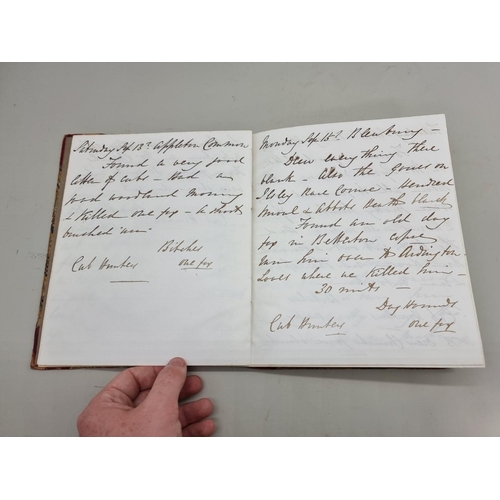 Saturday Sep. 13th Appleton Common
Found a very good
litter of cubs - Had a
good woodland morning
& killed one fox - a short
Bitches
Cub Hunters one fox
Monday Sep. 15th Blewbury -
Drew everything there
blank - Also the gorse on
Ilsley Race Course - Hendred
& Abbots Heath blank
Found an old dog
fox in Betterton copse
ran him over to Ardington
where we killed him -
30 mits -
Dog Hounds
Cub Hunters one fox